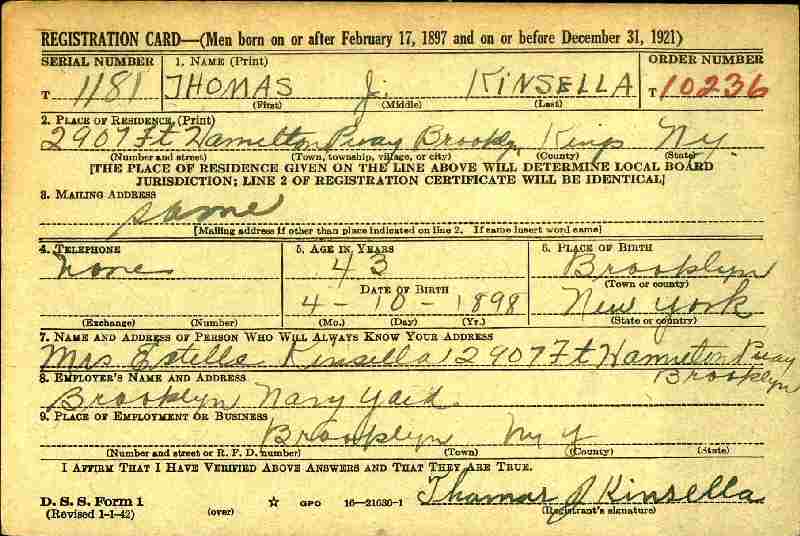 REGISTRATION CARD—(Men born on or after February 17, 1897 and on or before December 31, 1921)
SERIAL NUMBER 1. NAME (Print) ORDER NUMBER
T 1181 THOMAS J. KINSELLA T 10236
(First) (Middle) (Last)
2. PLACE OF RESIDENCE (Print)
2907 Ft Hamilton Pway Brooklyn Kings Ny.
(Number and street) (Town, township, village, or city) (County) (State)
[THE PLACE OF RESIDENCE GIVEN ON THE LINE ABOVE WILL DETERMINE LOCAL BOARD
JURISDICTION; LINE 2 OF REGISTRATION CERTIFICATE WILL BE IDENTICAL]
3. MAILING ADDRESS
same
[Mailing address if other than place indicated on line 2. If same insert word same]
4. TELEPHONE 5. AGE IN YEARS 6. PLACE OF BIRTH
none 43 Brooklyn
(Town or county)
DATE OF BIRTH
4 - 10 - 1898 New York
(Exchange) (Number) (Mo.) (Day) (Yr.) (State or country)
7. NAME AND ADDRESS OF PERSON WHO WILL ALWAYS KNOW YOUR ADDRESS
Mrs Estella Kinsella 2907 Ft Hamilton Pway
Brooklyn
8. EMPLOYER'S NAME AND ADDRESS
Brooklyn Navy Yard
9. PLACE OF EMPLOYMENT OR BUSINESS
Brooklyn Ny
(Number and street or R. F. D. number) (Town) (County) (State)
I AFFIRM THAT I HAVE VERIFIED ABOVE ANSWERS AND THAT THEY ARE TRUE.
D. S. S. Form 1
(Revised 1-1-42) (over) ☆ GPO 16—21630-1 Thomas J Kinsella
(Registrant's signature)